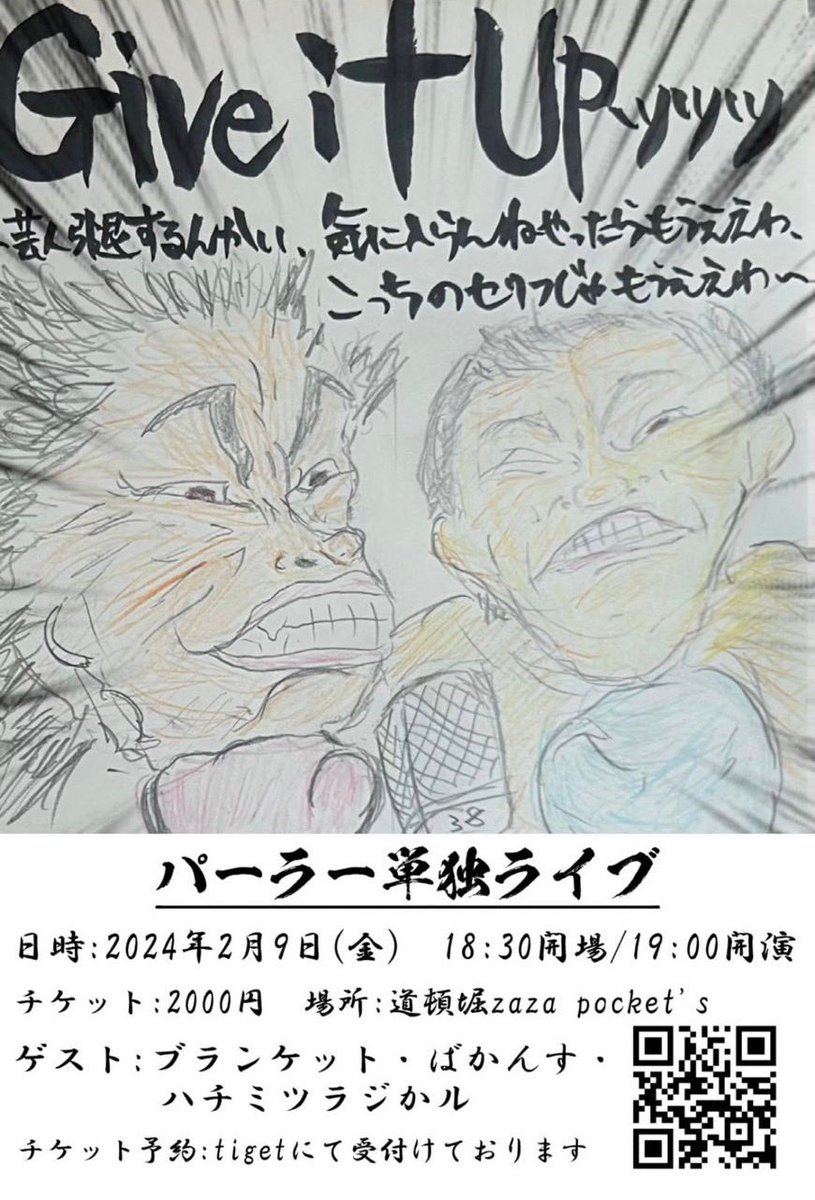 Give it UPッッッッ
芸人引退するんかい、気に入らんねやったらもうええわ、
こっちのセリフじゃもうええわ〜
38
パーラー単独ライブ
日時:2024年2月9日(金) 18:30開場/19:00開演
チケット:2000円 場所:道頓堀zaza pocket's
ゲスト:ブランケット・ばかんす・
ハチミツラジかル
チケット予約:tigetにて受付けております